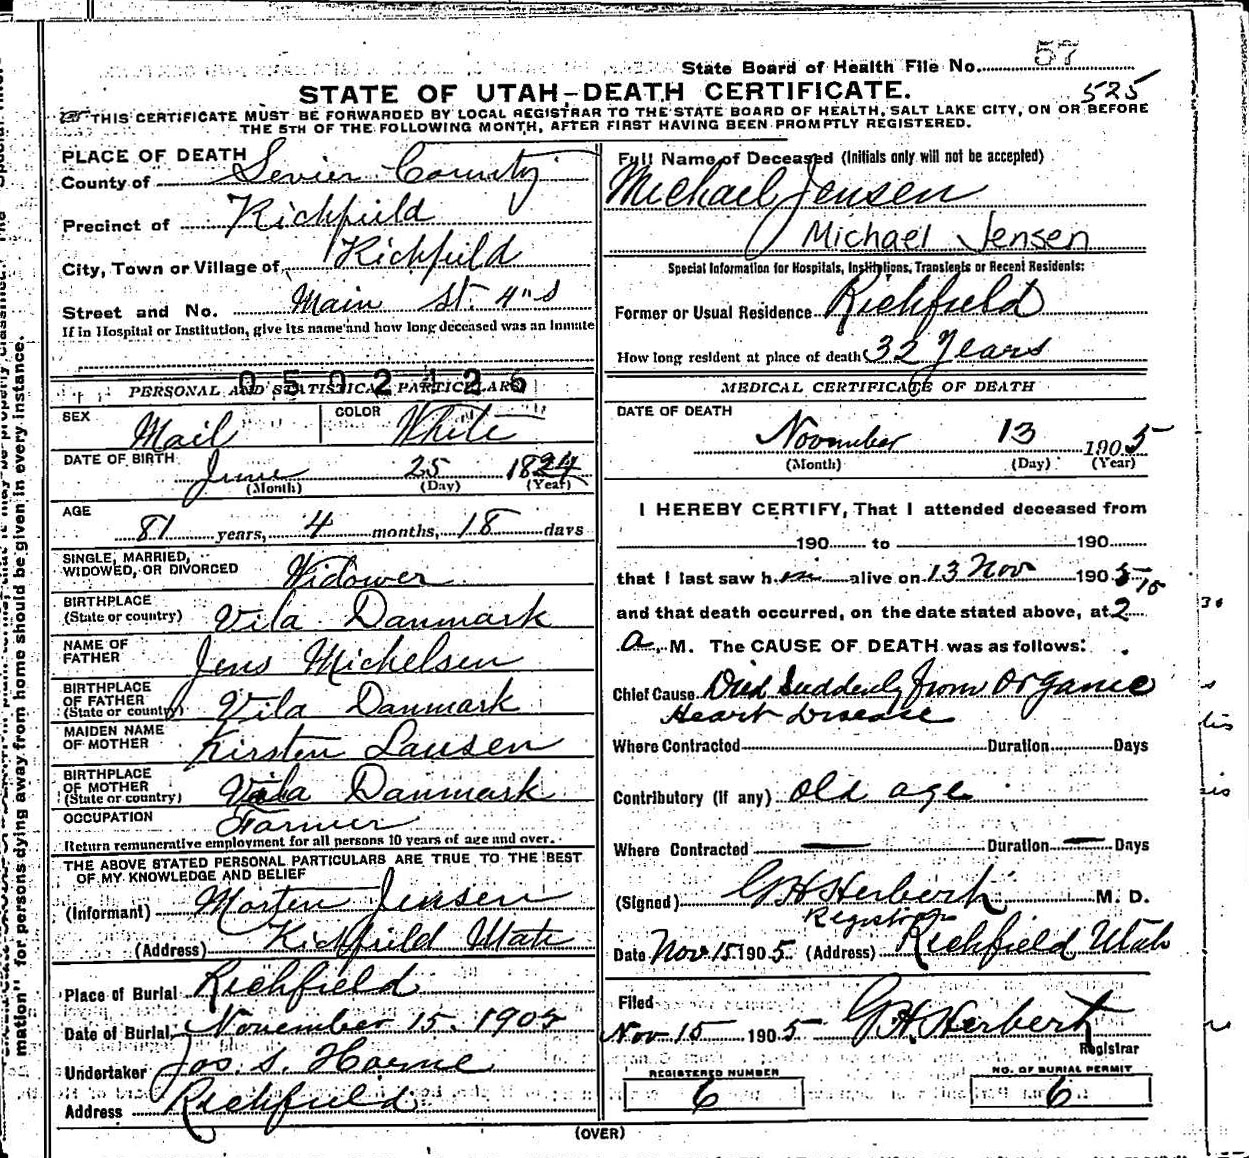 State Board of Health File No. 57
525
STATE OF UTAH-DEATH CERTIFICATE.
THIS CERTIFICATE MUST BE FORWARDED BY LOCAL REGISTRAR TO THE STATE BOARD OF HEALTH, SALT LAKE CITY, ON OR BEFORE
THE 5TH OF THE FOLLOWING MONTH, AFTER FIRST HAVING BEEN PROMPTLY REGISTERED.
PLACE OF DEATH
County of Sevier County
Precinct of Richfield
City, Town or Village of Richfield
Street and No. Main St. 4" S
If in Hospital or Institution, give its name and how long deceased was an Inmate
0502426
PERSONAL AND STATISTICAL PARTICULARS
SEX Mail COLOR White
DATE OF BIRTH June 25 1824
(Month) (Day) (Year)
AGE
81 years, 4 months, 18 days
SINGLE, MARRIED,
WIDOWED, OR DIVORCED Widower
BIRTHPLACE
(State or country) Vila Danmark
NAME OF
FATHER Jens Michelsen
BIRTHPLACE
OF FATHER
(State or country) Vila Danmark
MAIDEN NAME
OF MOTHER Kirsten Lausen
BIRTHPLACE
OF MOTHER
(State or country) Vila Danmark
OCCUPATION Farmer
Return remunerative employment for all persons 10 years of age and over.
THE ABOVE STATED PERSONAL PARTICULARS ARE TRUE TO THE BEST
OF MY KNOWLEDGE AND BELIEF
(Informant) Morten Jensen
(Address) Richfield Utah
Place of Burial Richfield
Date of Burial, November 15. 1905
Undertaker Jos. S. Horne
Address Richfield
Full Name of Deceased (Initials only will not be accepted)
Michael Jensen
Michael Jensen
Special Information for Hospitals, Institutions, Transients or Recent Residents:
Former or Usual Residence Richfield
How long resident at place of death 32 Years
MEDICAL CERTIFICATE OF DEATH
DATE OF DEATH
November 13 1905
(Month) (Day) (Year)
I HEREBY CERTIFY, That I attended deceased from
190 to 190
that I last saw him alive on 13 Nov 1905
and that death occurred, on the date stated above, at 2 15
a. M. The CAUSE OF DEATH was as follows:
Chief Cause Died Suddenly from Organic
Heart Disease
Where Contracted Duration Days
Contributory (if any) old age
Where Contracted — Duration — Days
(Signed) G H Herbert M. D.
Registrar
Date Nov 15 1905 (Address) Richfield Utah
Filed
Nov 15 1905 G. H. Herbert
Registrar
REGISTERED NUMBER NO. OF BURIAL PERMIT
6 6
(OVER)
mation" for persons dying away from home should be given in every instance.